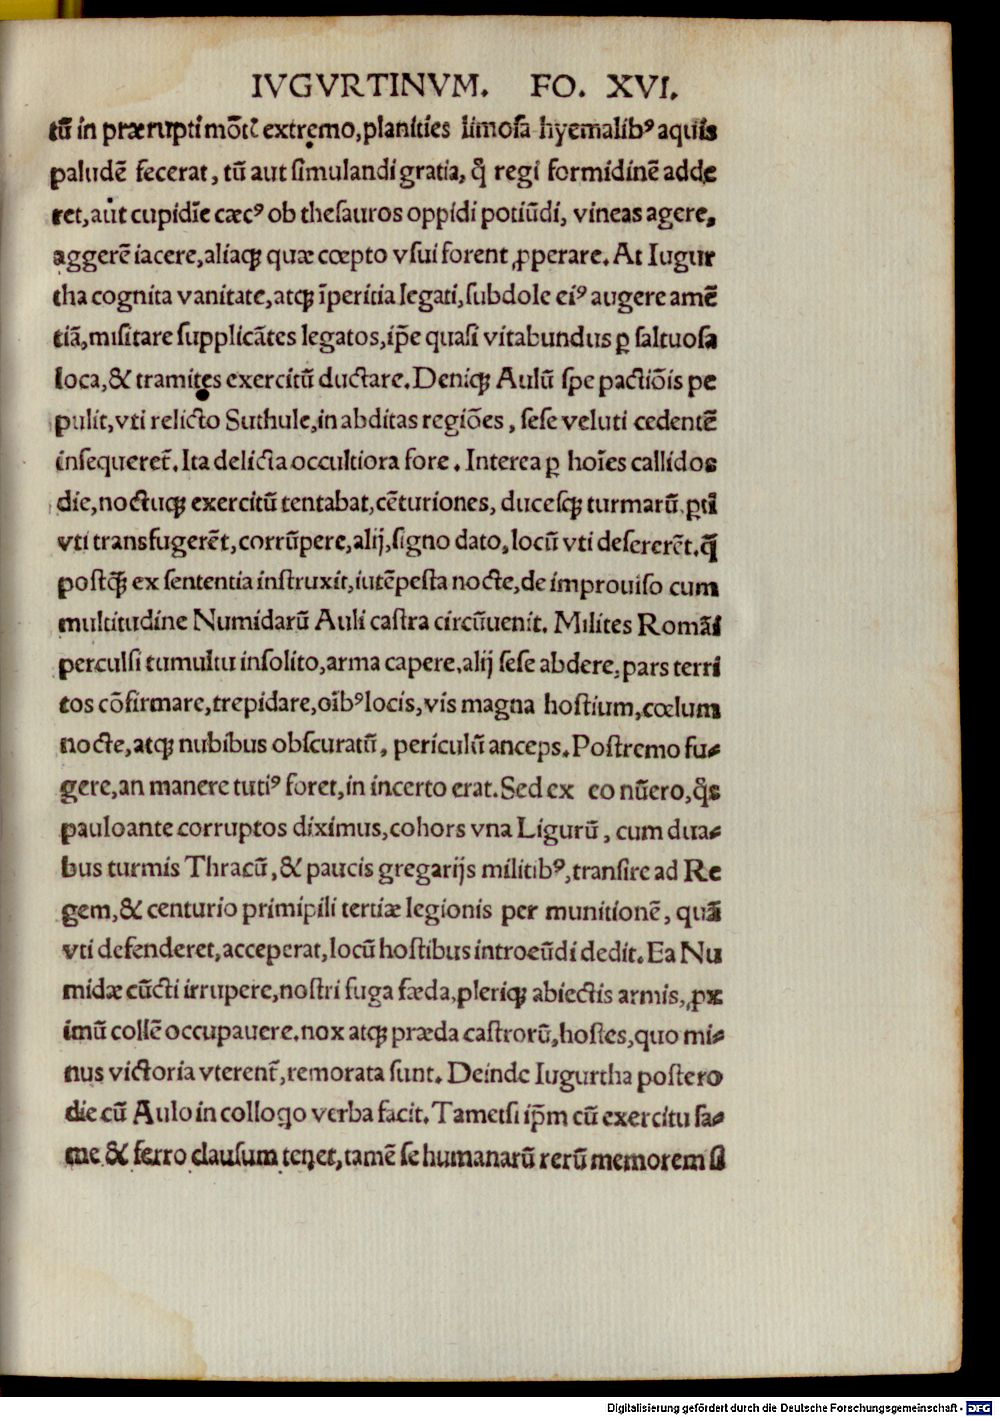 IVGVRTINVM. FO. XVI.
tū in prærupti mōtꝭ extremo, planities limosa hyemalibꝰ aquis
paludē fecerat, tū aut simulandi gratia, q̊ regi formidinē adde
ret, aūt cupidīe cæcꝰ ob thesauros oppidi potiūdi, vineas agere,
aggerē iacere, aliaqꝫ quæ cœpto vsui forent ꝓperare. At Iugur
tha cognita vanitate, atqꝫ īperitia legati, subdole eiꝰ augere amē
tiā, misitare supplicātes legatos, ip̄e quasi vitabundus ꝑ saltuosa
loca, & tramites exercitū ductare. Deniqꝫ Aulū spe pactiōis pe
pulit, vti relicto Suthule, in abditas regiōes, sese veluti cedentē
insequeret̄. Ita delicta occultiora fore. Interea ꝑ hoīes callidos
die, noctuqꝫ exercitū tentabat, cēturiones, ducesqꝫ turmarū, ꝑti
vti transfugerēt, corrūpere, alij, signo dato, locū vti desererēt. q̄
postq̄ꝫ ex sententia instruxit, iutēpesta nocte, de improuiso cum
multitudine Numidarū Auli castra circūuenit. Milites Romāi
perculsi tumultu insolito, arma capere, alij sese abdere, pars terri
tos cōfirmare, trepidare, oībꝰ locis, vis magna hostium, cœlum
nocte, atqꝫ nubibus obscuratū, periculū anceps. Postremo fu-
gere, an manere tutiꝰ foret, in incerto erat. Sed ex eo nūero, q̊s
pauloante corruptos diximus, cohors vna Ligurū, cum dua-
bus turmis Thracū, & paucis gregarijs militibꝰ, transire ad Re
gem, & centurio primipili tertiæ legionis per munitionē, quā
vti defenderet, acceperat, locū hostibus introeūdi dedit. Ea Nu
midæ cūcti irrupere, nostri fuga fæda, pleriqꝫ abiectis armis, ꝓx
imū collē occupauere. nox atqꝫ præda castrorū, hostes, quo mi-
nus victoria vterent̄, remorata sunt. Deinde Iugurtha postero
die cū Aulo in colloqo verba facit. Tametsi ip̄m cū exercitu fa-
me & ferro clausum tenet, tamē se humanarū rerū memorem si
Digitalisierung gefördert durch die Deutsche Forschungsgemeinschaft - DFG